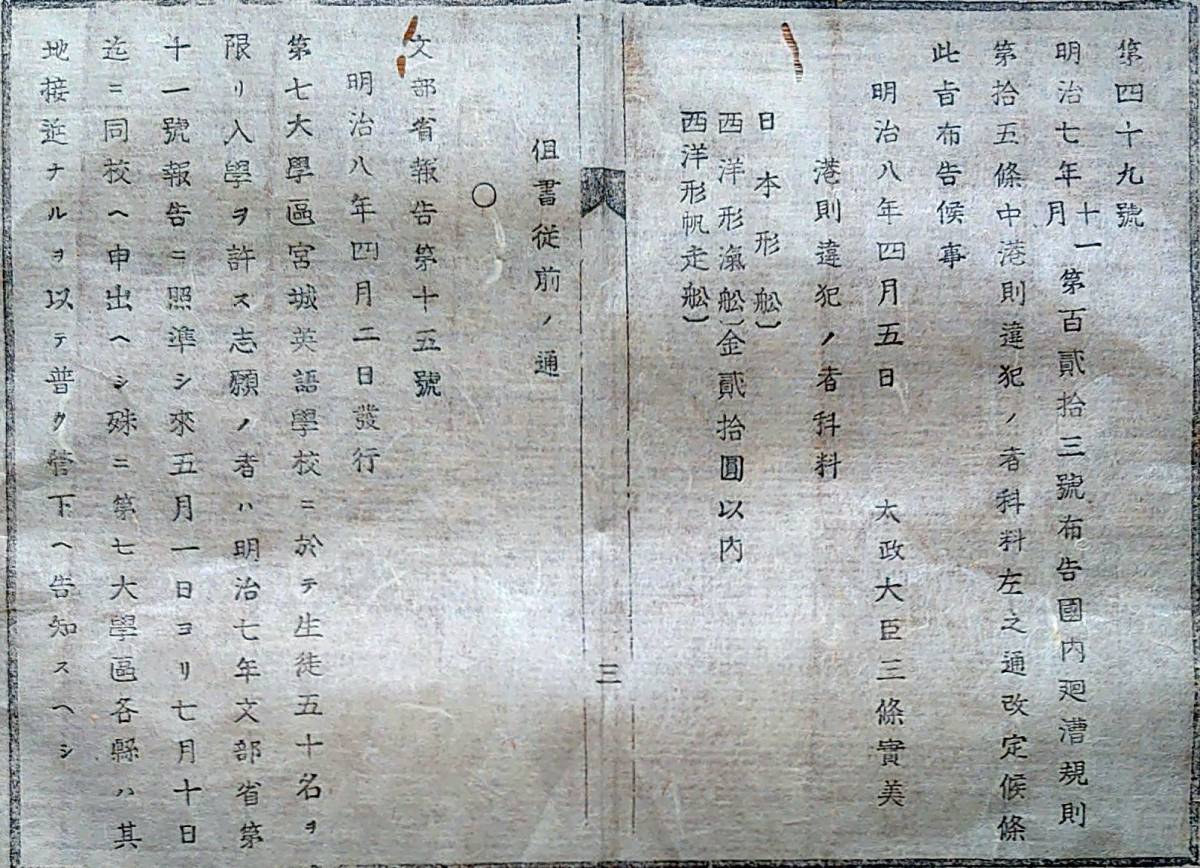 第四十九號
明治七年十一月第百貳拾三號布告國内廻漕規則
第拾五條中港則違犯ノ者科料左之通改定候條
此旨布告候事
明治八年四月五日　太政大臣三條實美
港則違犯ノ者科料
日本形舩
西洋形滊舩　金貳拾圓以内
西洋形帆走舩
但書従前ノ通
三
○
文部省報告第十五號
明治八年四月二日發行
第七大學區宮城英語學校ニ於テ生徒五十名ヲ
限リ入學ヲ許ス志願ノ者ハ明治七年文部省第
十一號報告ニ照準シ來五月一日ヨリ七月十日
迄ニ同校ヘ申出ヘシ殊ニ第七大學區各縣ハ其
地接近ナルヲ以テ普ク管下ヘ告知スヘシ